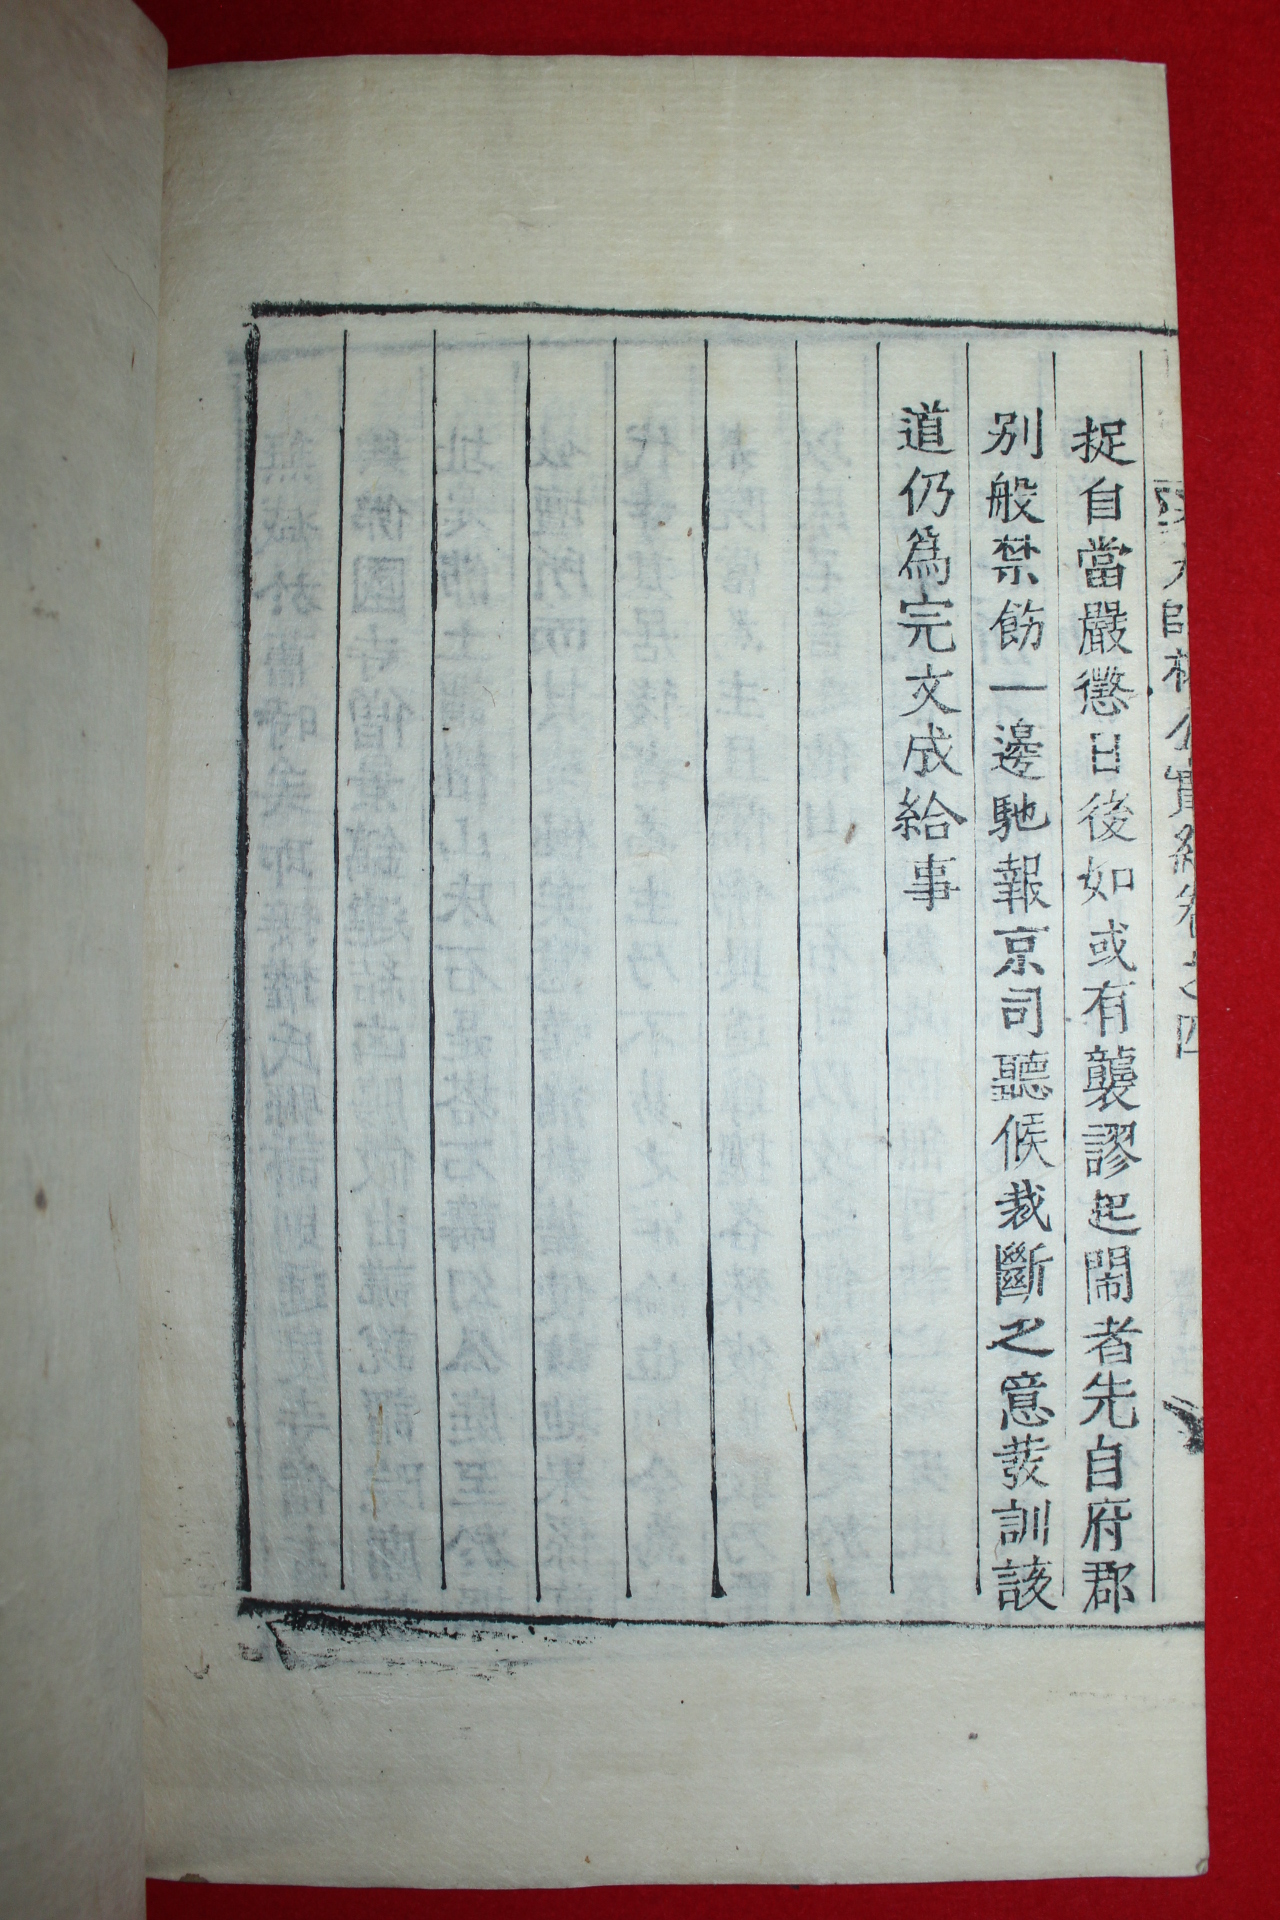 捉自當嚴懲日後如或有襲謬起鬧者先自府郡
別般禁飭一邊馳報京司聽候裁斷之意發訓該
道仍爲完文成給事